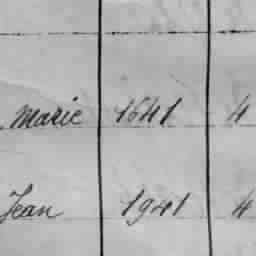 Marie 1641 4
Jean 1941 4